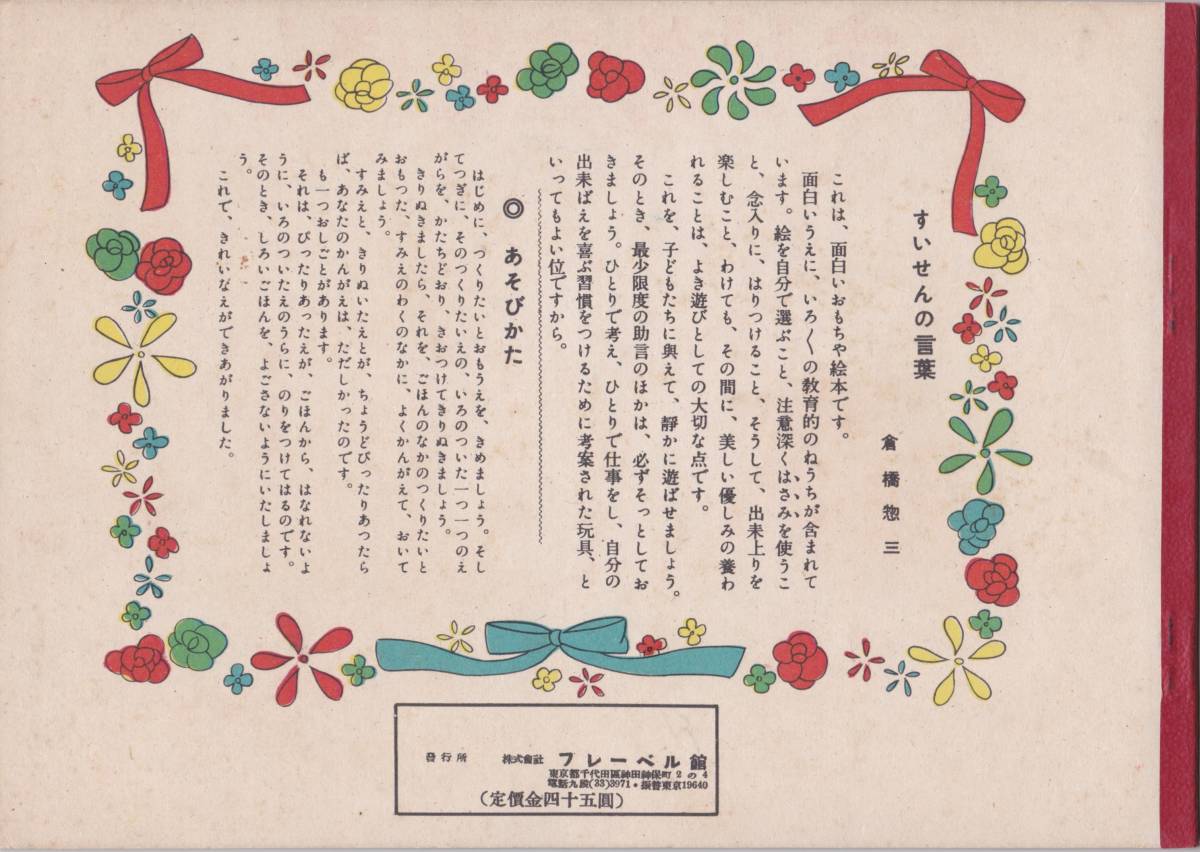 すいせんの言葉
倉橋惣三
これは、面白いおもちや絵本です。
面白いうえに、いろ〱の教育的のねうちが含まれて
います。絵を自分で選ぶこと、注意深くはさみを使うこ
と、念入りに、はりつけること、そうして、出来上りを
楽しむこと、わけても、その間に、美しい優しみの養わ
れることは、よき遊びとしての大切な点です。
これを、子どもたちに與えて、靜かに遊ばせましょう。
そのとき、最少限度の助言のほかは、必ずそっとしてお
きましょう。ひとりで考え、ひとりで仕事をし、自分の
出来ばえを喜ぶ習慣をつけるために考案された玩具、と
いってもよい位ですから。
◎ あそびかた
はじめに、つくりたいとおもうえを、きめましょう。そし
てつぎに、そのつくりたいえの、いろのついた一つ一つのえ
がらを、かたちどおり、きおつけてきりぬきましょう。
きりぬきましたら、それを、ごほんのなかのつくりたいと
おもつた、すみえのわくのなかに、よくかんがえて、おいて
みましょう。
すみえと、きりぬいたえとが、ちょうどぴったりあつたら
ば、あなたのかんがえは、ただしかったのです。
も一つおしごとがあります。
それは、ぴったりあったえが、ごほんから、はなれないよ
うに、いろのついたえのうらに、のりをつけてはるのです。
そのとき、しろいごほんを、よごさないようにいたしましょ
う。
これで、きれいなえができあがりました。
発行所 株式會社 フレーベル館
東京都千代田區神田神保町2の4
電話九段(33)3971・振替東京19640
(定價金四十五圓)